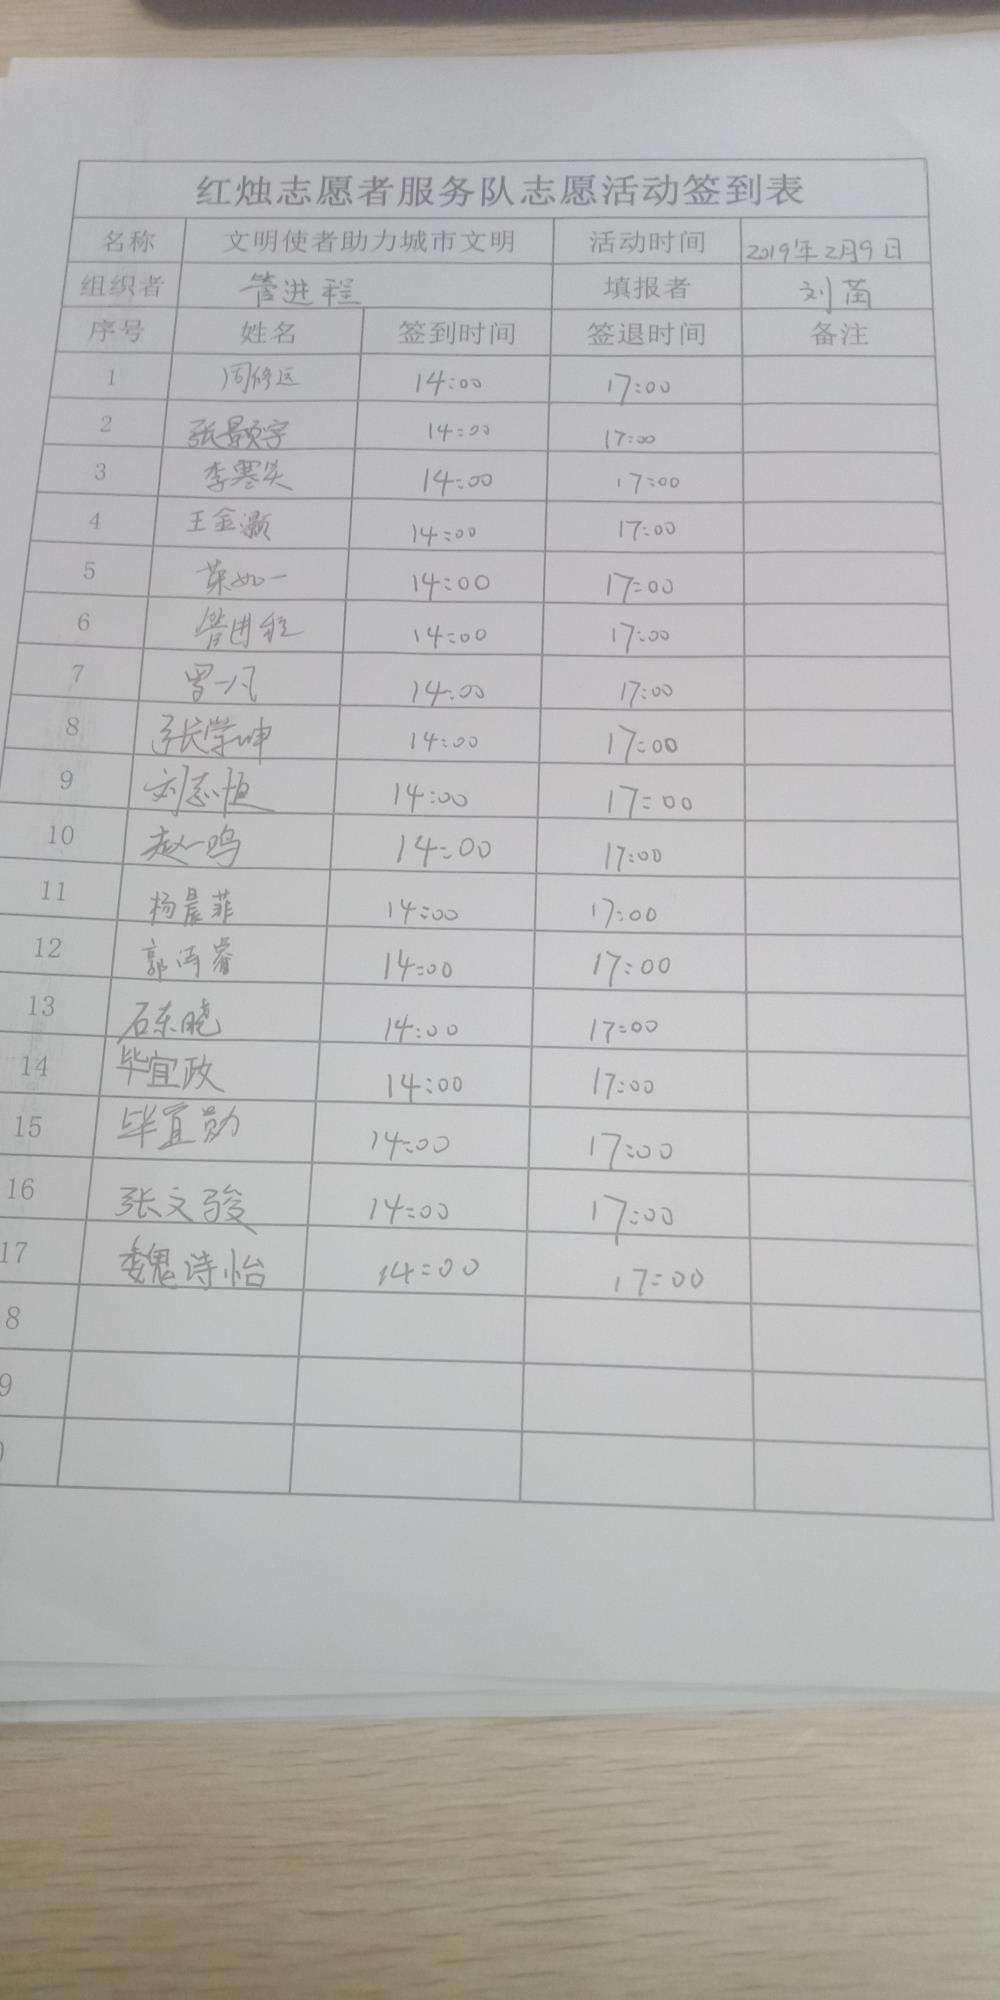 红烛志愿者服务队志愿活动签到表
名称 文明使者助力城市文明 活动时间 2019年2月9日
组织者 管进程 填报者 刘苗
序号 姓名 签到时间 签退时间 备注
1 周修远 14:00 17:00
2 张颢宇 14:00 17:00
3 李寒笑 14:00 17:00
4 王金灏 14:00 17:00
5 如一 14:00 17:00
6 管进程 14:00 17:00
7 罗一凡 14:00 17:00
8 张学坤 14:00 17:00
9 刘志恒 14:00 17:00
10 赵一鸣 14:00 17:00
11 杨晨菲 14:00 17:00
12 郭涛睿 14:00 17:00
13 石东晓 14:00 17:00
14 毕宜政 14:00 17:00
15 毕宜勋 14:00 17:00
16 张文骏 14:00 17:00
17 魏诗怡 14:00 17:00
8
9